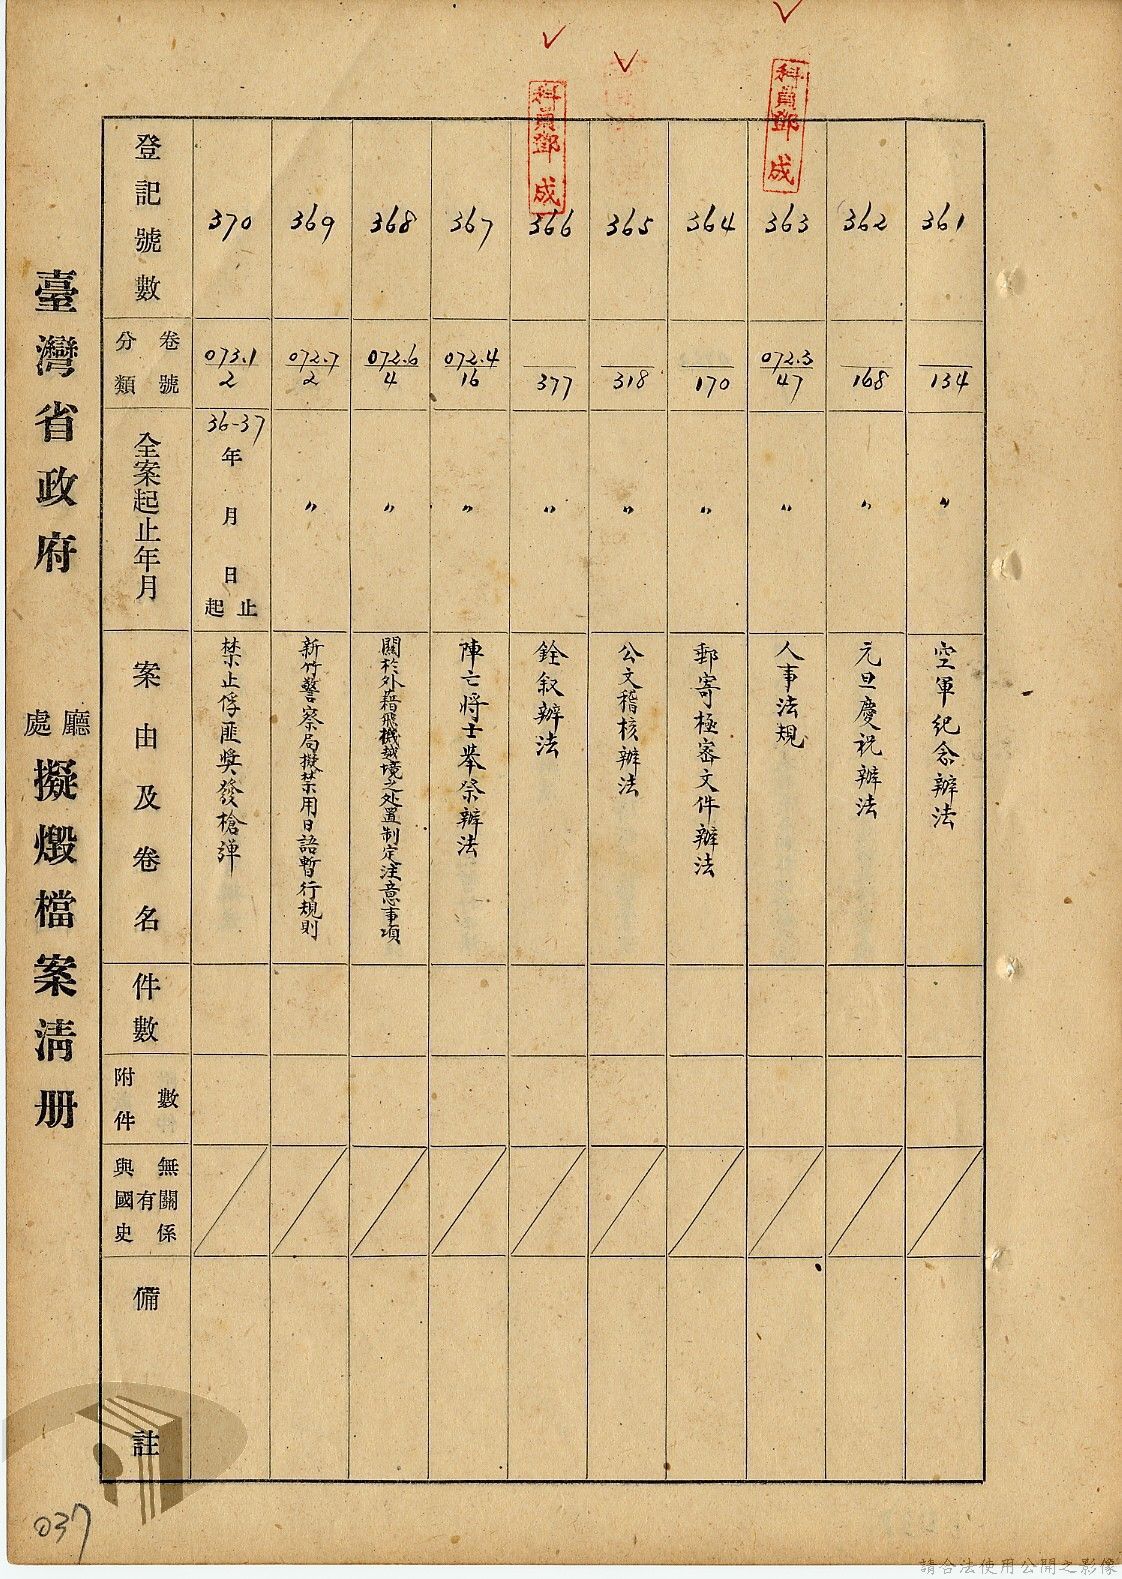 臺灣省政府 廳處 擬燬檔案清册
登記號數
370
369
368
367
366
365
364
363
362
361
分類卷號
073.1/2
072.7/2
072.6/4
072.4/16
/377
/318
/170
072.3/47
/168
/134
全案起止年月
36-37
年 月 日 起止
〃
〃
〃
〃
〃
〃
〃
〃
〃
案由及卷名
禁止俘匪獎發槍彈
新竹警察局擬禁用日語暫行規則
關於外藉飛機越境之处置制定注意事項
陣亡將士举祭辦法
銓叙辦法
公文稽核辦法
郵寄極密文件辦法
人事法規
元旦慶祝辦法
空軍紀念辦法
件數
附件數
與國史有無關係
備註
科員鄧成
科員鄧成
037
請合法使用公開之影像